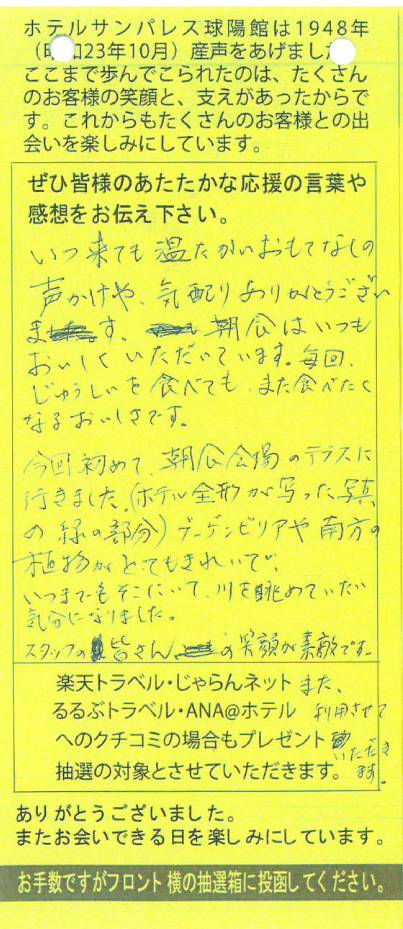 ホテルサンパレス球陽館は1948年
（昭和23年10月）産声をあげました。
ここまで歩んでこられたのは、たくさん
のお客様の笑顔と、支えがあったからで
す。これからもたくさんのお客様との出
会いを楽しみにしています。
ぜひ皆様のあたたかな応援の言葉や
感想をお伝え下さい。
いつ来ても温たかいおもてなしの
声かけや、気配りありがとうござい
ます、朝食はいつも
おいしくいただいています。毎回、
じゅうしいを食べても、また食べたく
なるおいしさです。
今回初めて、朝食会場のテラスに
行きました、(ホテル全形が写った写真
の緑の部分)ブーゲンビリアや南方の
植物がとてもきれいで、
いつまでもそこにいて、川を眺めていたい
気分になりました。
スタッフの皆さんの笑顔が素敵です。
楽天トラベル・じゃらんネット また、
るるぶトラベル・ANA@ホテル 利用させて
へのクチコミの場合もプレゼント いただき
抽選の対象とさせていただきます。 ます。
ありがとうございました。
またお会いできる日を楽しみにしています。
お手数ですがフロント横の抽選箱に投函してください。